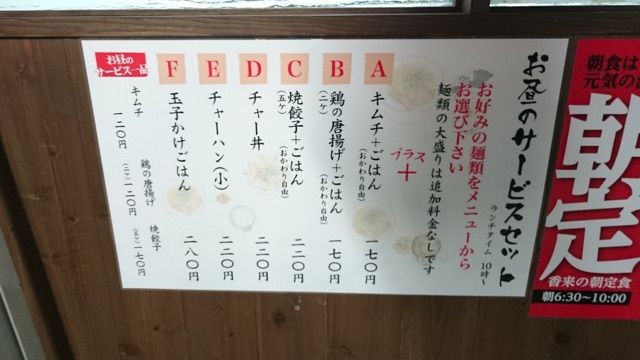 お昼のサービスセット
ランチタイム 10時~
お好みの麺類をメニューから
お選び下さい
麺類の大盛りは追加料金なしです
プラス
+
A キムチ+ごはん (おかわり自由) 一七〇円
B 鶏の唐揚げ+ごはん (二ケ) (おかわり自由) 一七〇円
C 焼餃子+ごはん (五ケ) (おかわり自由) 二二〇円
D チャー丼 二二〇円
E チャーハン(小) 二二〇円
F 玉子かけごはん 二八〇円
お昼の
サービス一品
キムチ 一二〇円
鶏の唐揚げ (二ケ) 一二〇円
焼餃子 (五ケ) 一七〇円
朝食は
元気の
朝定
香来の朝定食
朝6:30~10:00